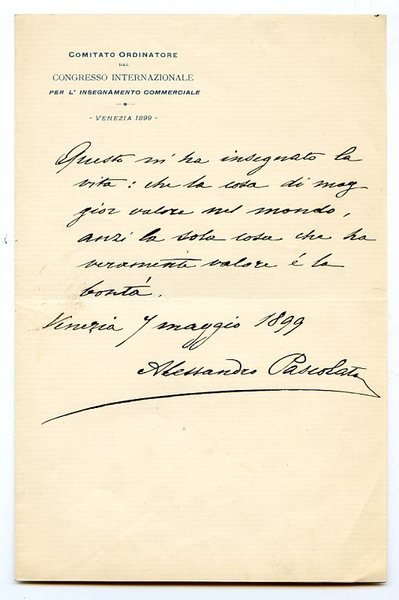 COMITATO ORDINATORE
DEL
CONGRESSO INTERNAZIONALE
PER L' INSEGNAMENTO COMMERCIALE
- VENEZIA 1899 -
Questo m' ha insegnato la
vita: che la cosa di mag
gior valore nel mondo,
anzi la sola cosa che ha
veramente valore é la
bontá.
Venezia 7 maggio 1899
Alessandro Pascolato